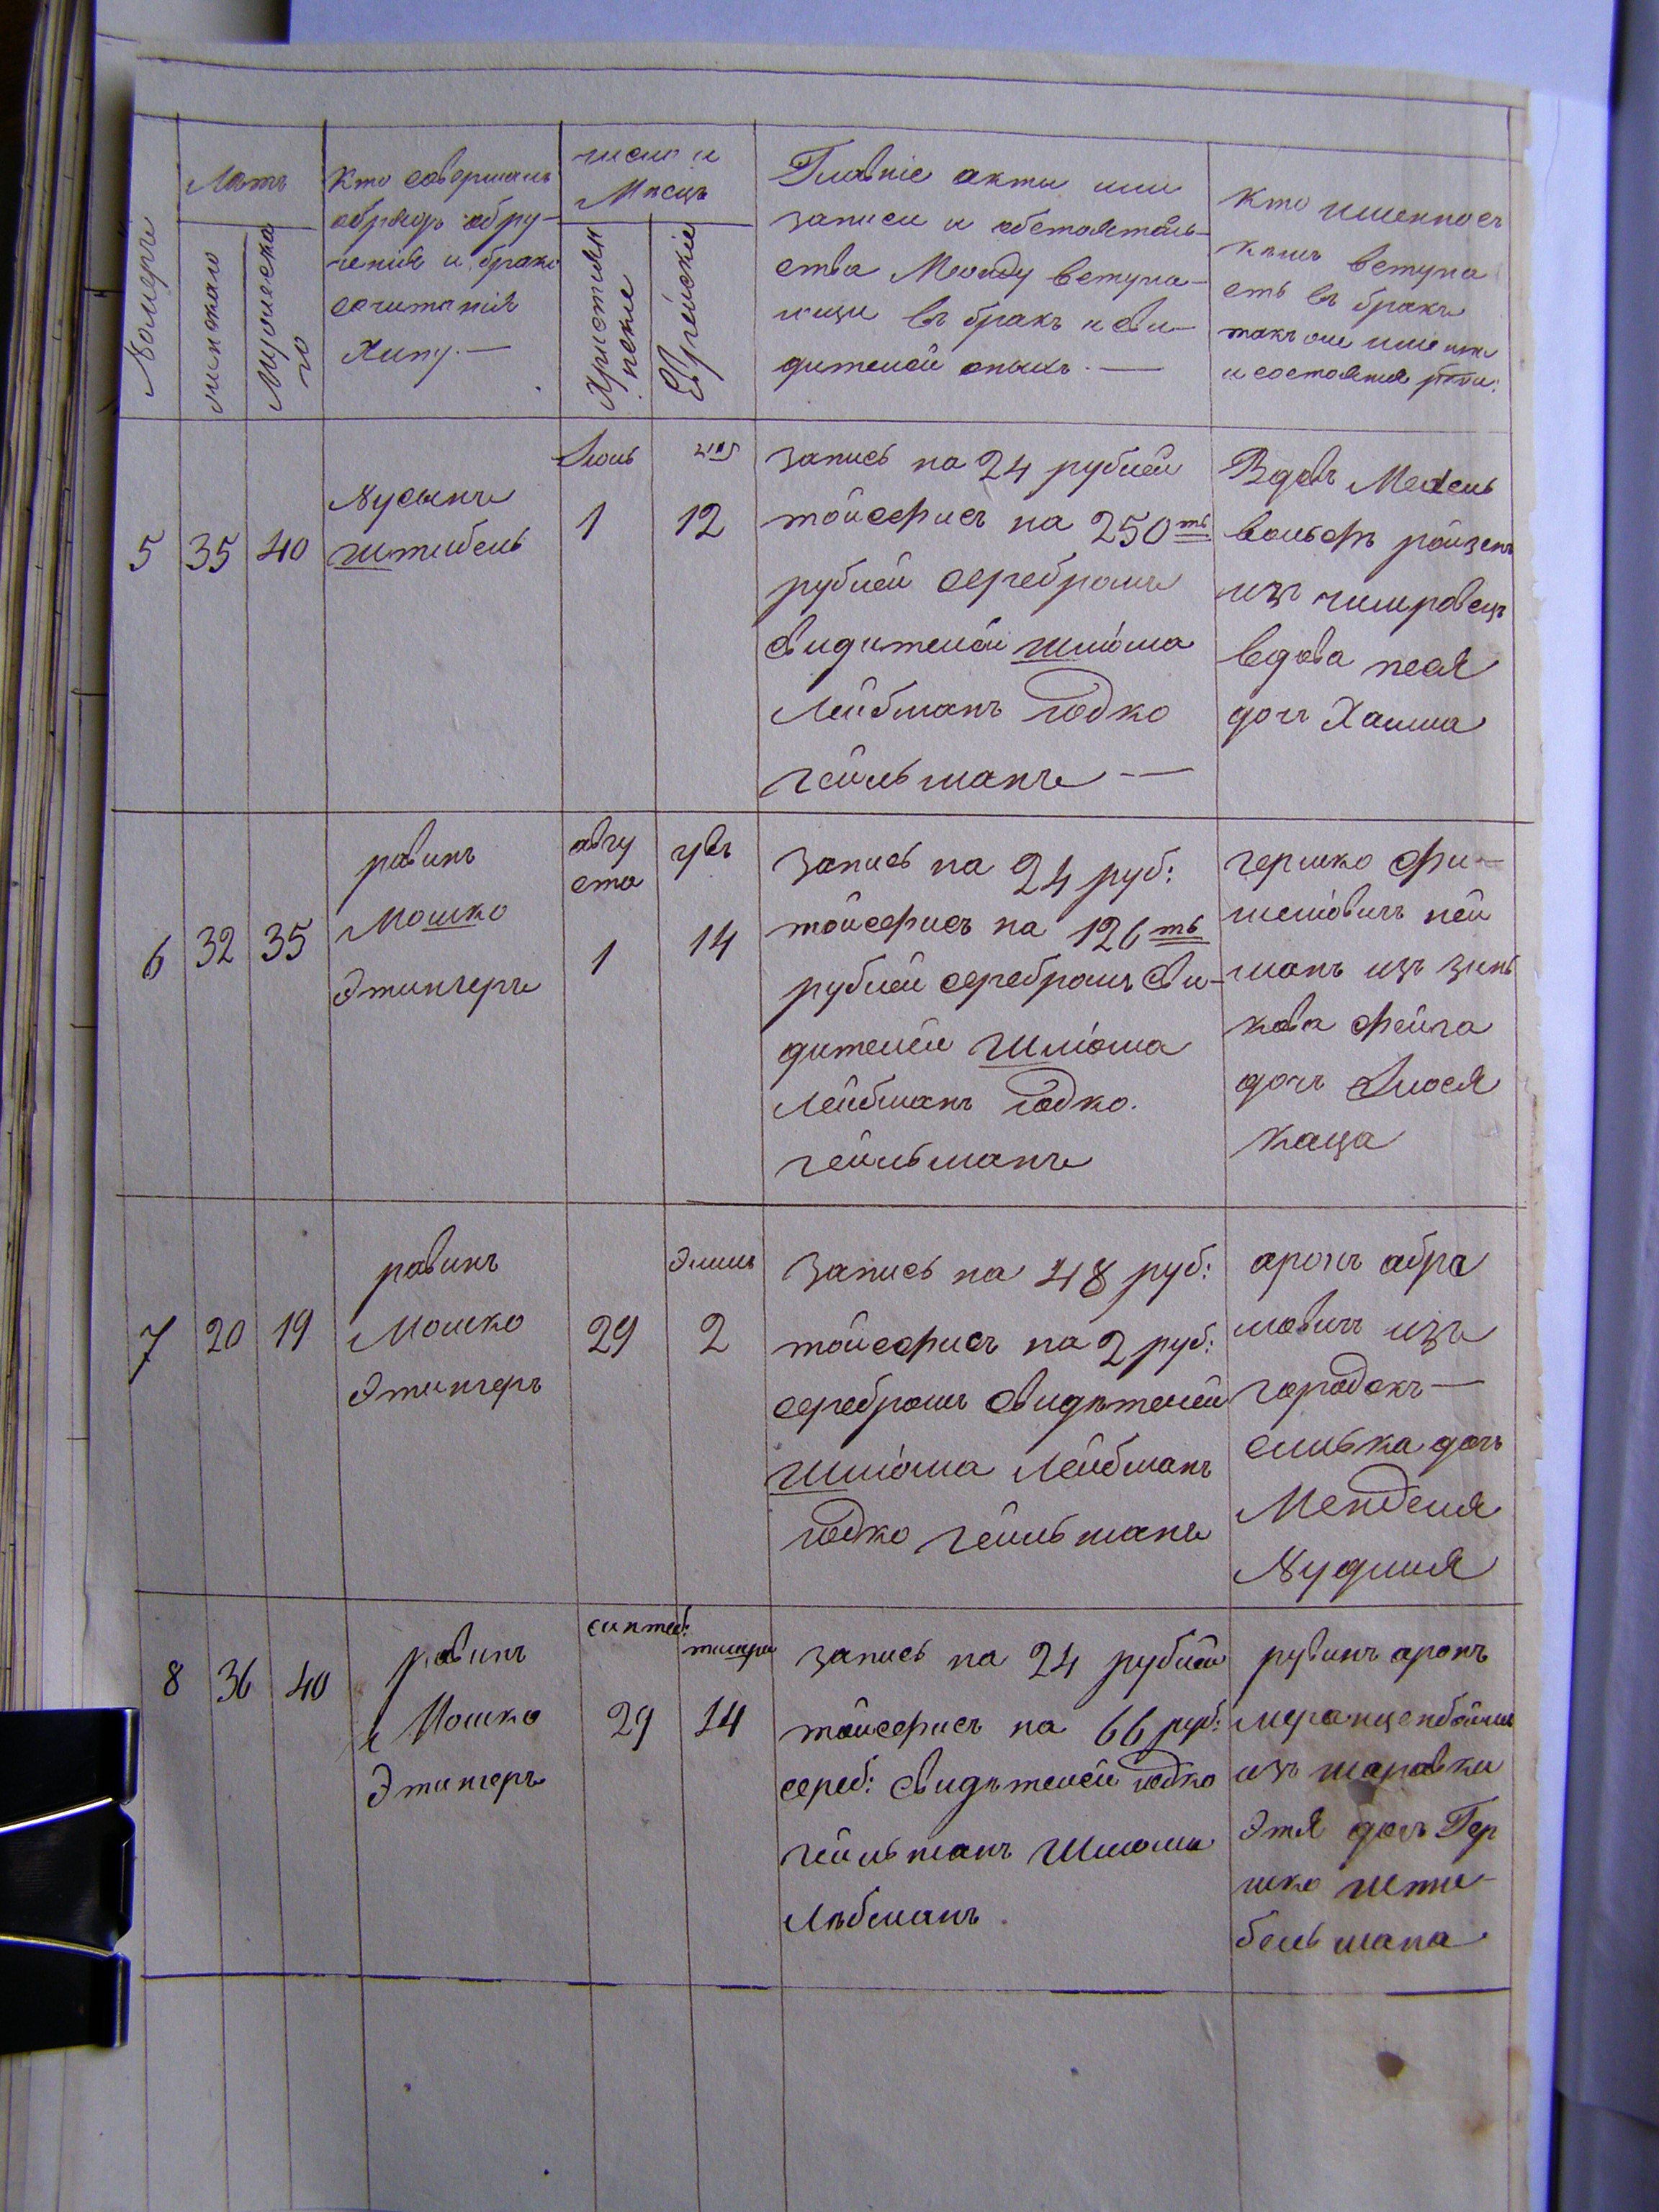 Номеръ
Лѣтъ
женскаго
Мужеска
го
Кто совершалъ
обрядъ обру-
ченія и брако
сочитанія
Хипу. —
число и
Мѣсяцъ
Христіян
ские
Еврейскіе
Главніе акты или
записи и обстоятель-
ства Между вступа-
ющи въ бракъ и сви-
дителей оныхъ. —
Кто именно съ
кемъ вступа
етъ въ бракъ
такъ же имена
и состояния роди:
5
35
40
Нусынъ
Штибель
Июнь
1
12
запись на 24 рублей
тойсефисъ на 250ть
рублей серебромъ
Свидителей Шлёма
Лейбманъ Юдко
гейльманъ —
Вдовъ Мехель
вольфъ ройзенъ
изъ чимровецъ
вдова песя
дочъ Хаима
6
32
35
равинъ
Мошко
Этингеръ
авгу
ста
1
увъ
14
Запись на 24 руб:
тойсефисъ на 126ть
рублей серебромъ Сви-
дителей Шлёма
Лейбманъ Юдко.
гейльманъ
гершко Фи-
шелёвичъ ней
манъ изъ зинь
кова Фейга
дочъ Июся
Каца
7
20
19
равинъ
Мошко
Этингеръ
29
Элиль
2
Запись на 48 руб:
тойсефисъ на 2 руб:
серебромъ Свидѣтелей
Шлёма Лейбманъ
Юдко гейльманъ
аронъ абра
мовичъ изъ
городокъ —
сливка дочъ
Менделя
Нудиля
8
36
40
равинъ
Мошко
Этингеръ
сиптеб:
29
тишри
14
запись на 24 рублей
тойсефисъ на 66 руб:
сереб: Свидѣтелей Юдко
гейльманъ Шлома
Лѣбманъ
рувинъ аронъ
меранценбоймъ
изъ шаровки
Этя дочъ Гер
шко Шти-
бельмана